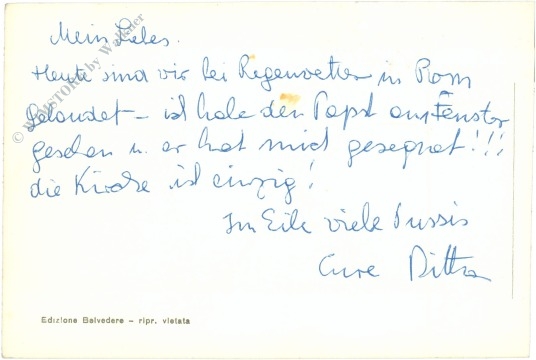 Mein Liebes.
Heute sind wir bei Regenwetter in Rom
gelandet – ich habe den Papst am Fenster
gesehen u. er hat mich gesegnet!!!
die Kirche ist einzig!
In Eile viele Pussis
Eure Ditta
Edizione Belvedere – ripr. vietata
© HISTORY by Wallner